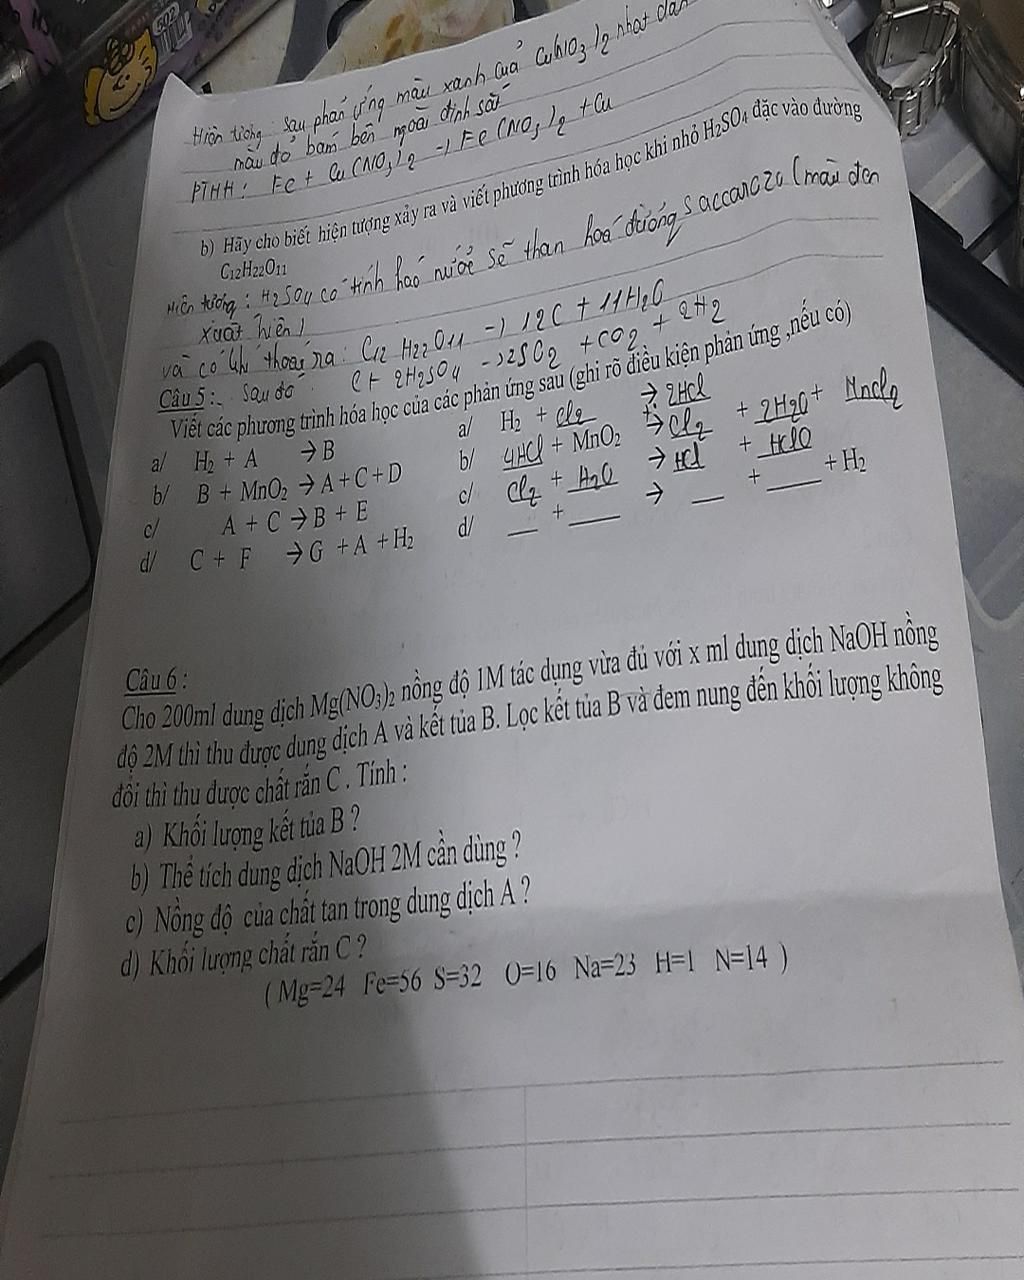 502
Hiện tượng: Sau phản ứng màu xanh của Cu(NO3)2 nhạt dần
màu đỏ bám bên ngoài đinh sắt
PTHH: Fe + Cu(NO3)2 → Fe(NO3)2 + Cu
b) Hãy cho biết hiện tượng xảy ra và viết phương trình hóa học khi nhỏ H2SO4 đặc vào đường
C12H22O11
Hiện tượng: H2SO4 có tính háo nước sẽ than hoá đường saccarozo (màu đen
xuất hiện)
và có khí thoát ra: C12H22O11 → 12C + 11H2O
Câu 5: Sau đó: C + 2H2SO4 → 2SO2 + CO2 + 2H2
Viết các phương trình hóa học của các phản ứng sau (ghi rõ điều kiện phản ứng ,nếu có)
a/ H2 + A → B a/ H2 + Cl2 → 2HCl
b/ B + MnO2 → A + C + D b/ 4HCl + MnO2 → Cl2 + 2H2O + MnCl2
c/ A + C → B + E c/ Cl2 + H2O → HCl + HClO
d/ C + F → G + A + H2 d/ __ + ___ → __ + ___ + H2
Câu 6 :
Cho 200ml dung dịch Mg(NO3)2 nồng độ 1M tác dụng vừa đủ với x ml dung dịch NaOH nồng
độ 2M thì thu được dung dịch A và kết tủa B. Lọc kết tủa B và đem nung đến khối lượng không
đổi thì thu được chất rắn C . Tính :
a) Khối lượng kết tủa B ?
b) Thể tích dung dịch NaOH 2M cần dùng ?
c) Nồng độ của chất tan trong dung dịch A ?
d) Khối lượng chất rắn C ?
( Mg=24 Fe=56 S=32 O=16 Na=23 H=1 N=14 )